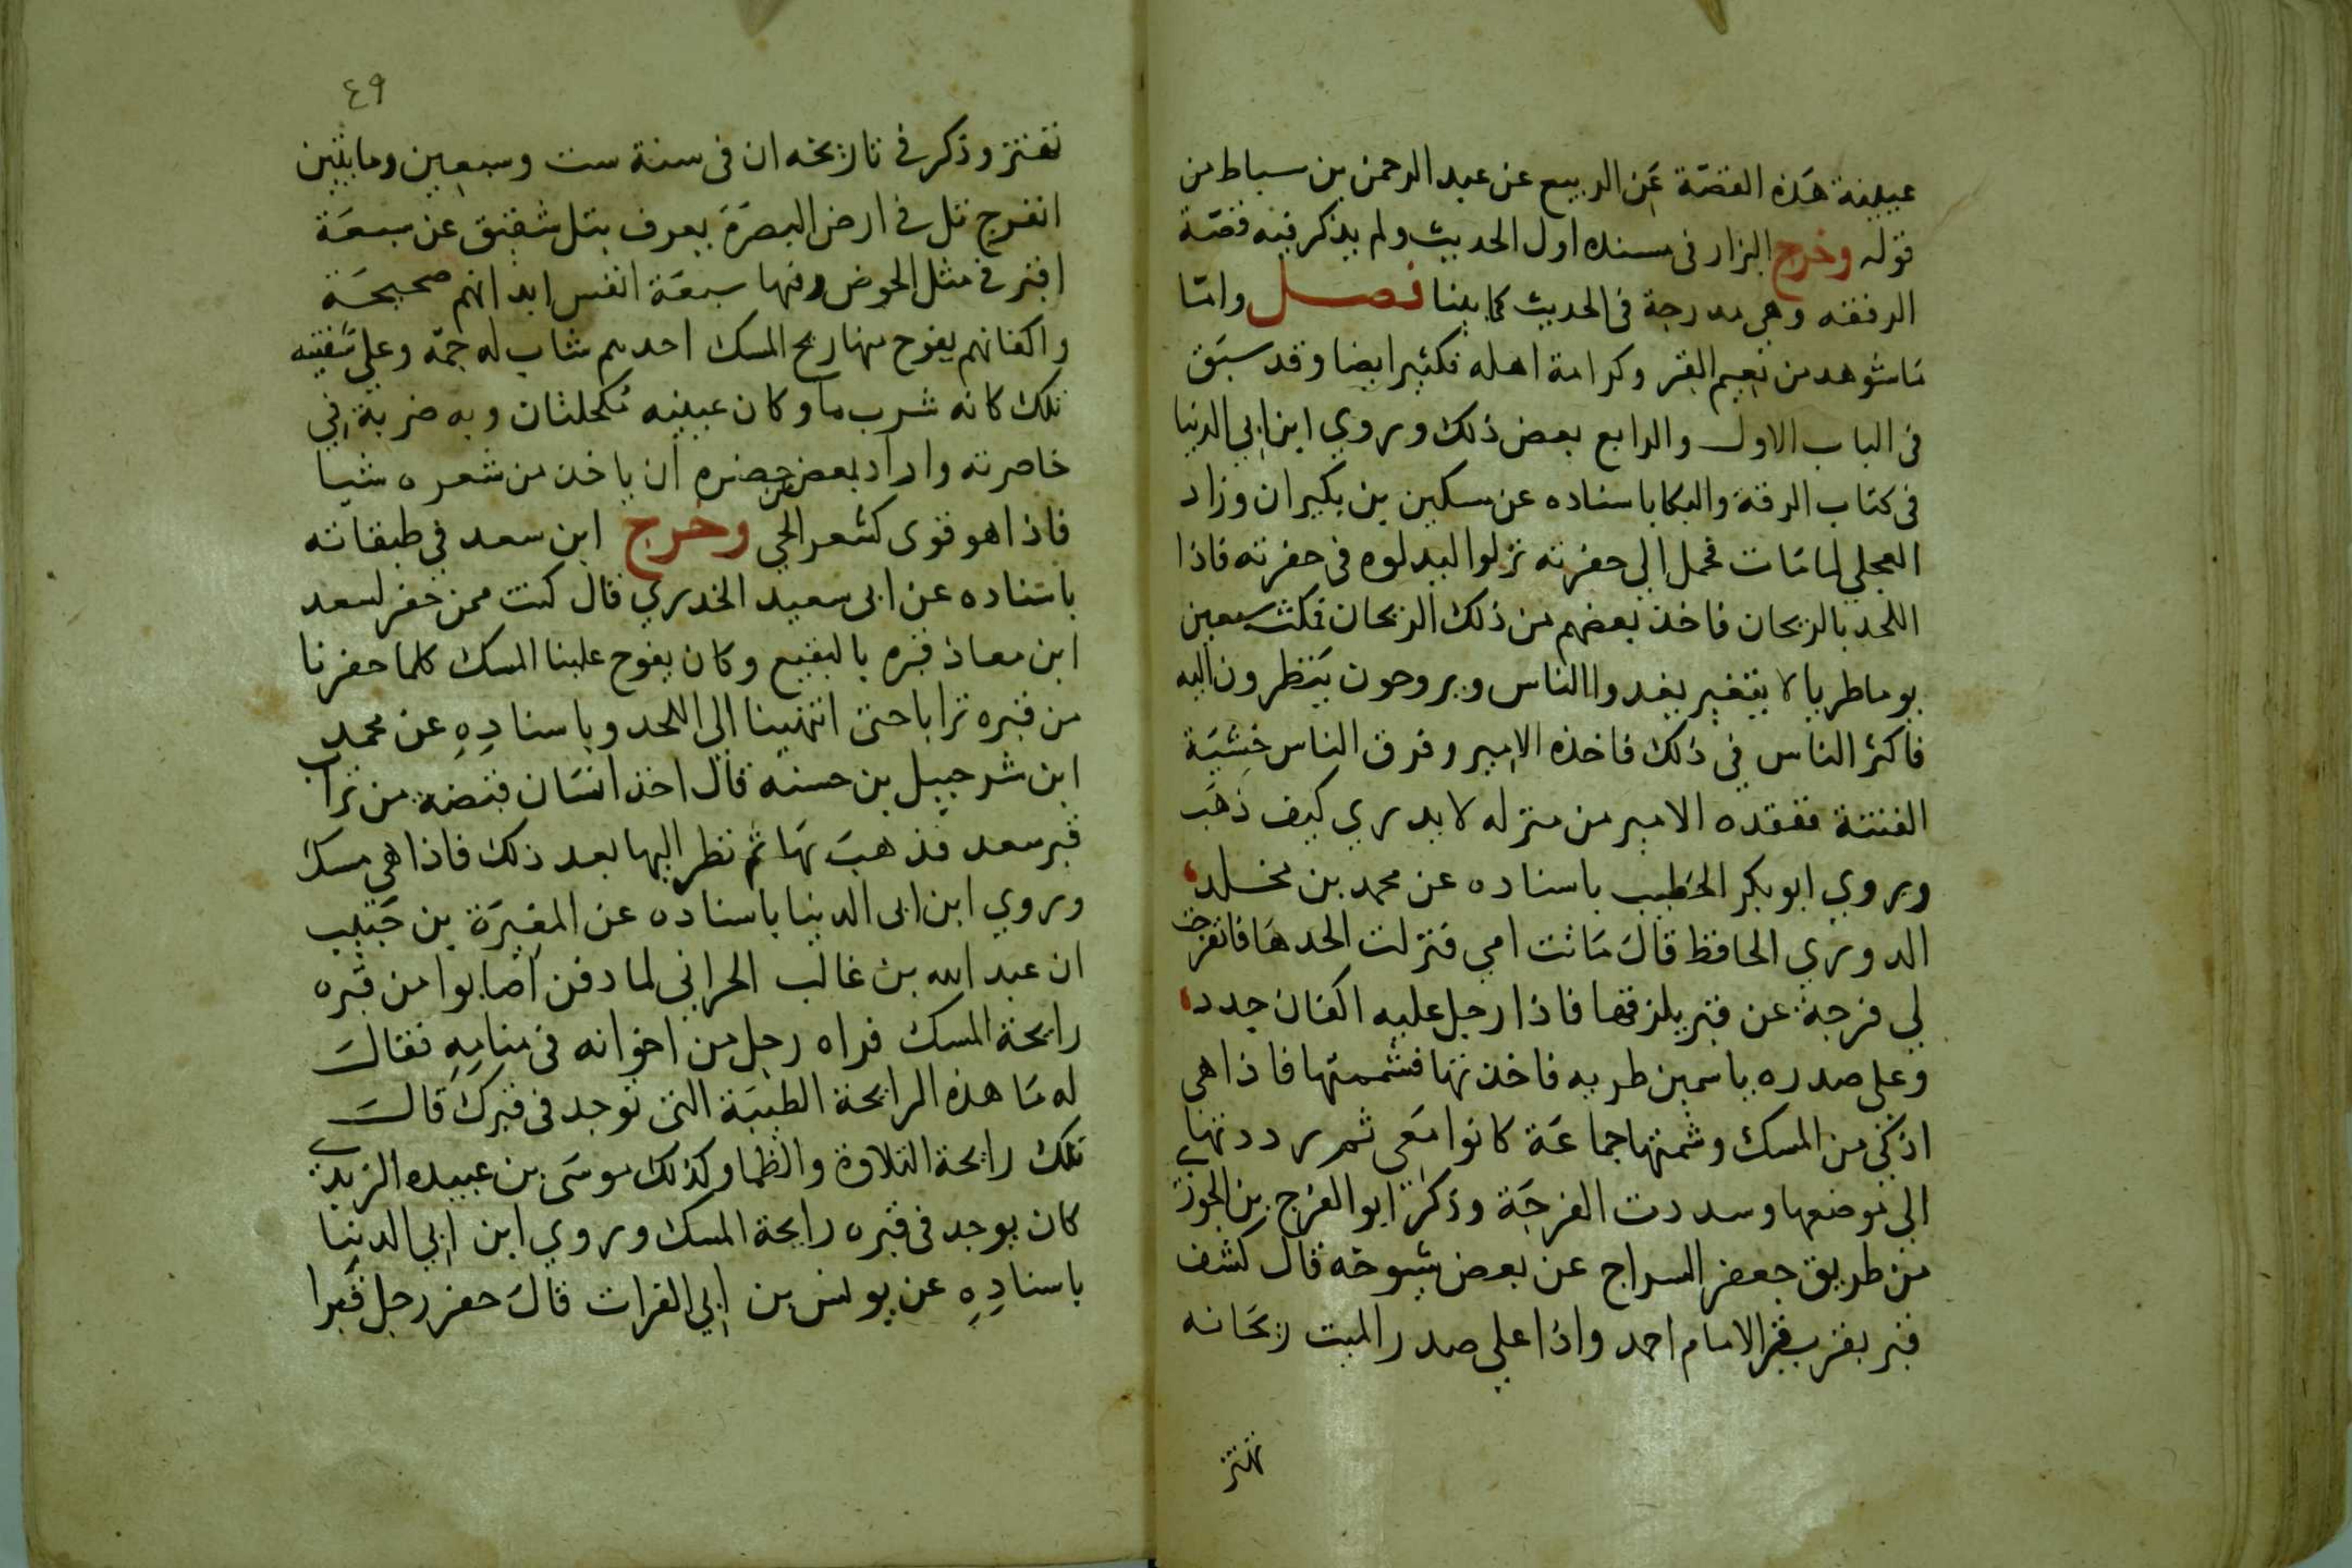 عيينة هذه القصة عن الربيع عن عبد الرحمن بن سباط من
قوله وخرج البزار فى مسنده اول الحديث ولم يذكر فيه قصة
الرفقه وهى مدرجة فى الحديث كما بينا فصل واما
ما شوهد من نعيم القبر وكرامة اهله فكثير ايضا وقد سبق
فى الباب الاول والرابع بعض ذلك وروي ابن ابي الدنيا
فى كتاب الرقة والبكا باسناده عن سكين بن بكير ان وزاد
العجلي لما مات فحمل الي حفرته نزلوا ليدلوه فى حفرته فاذا
اللحد بالريحان فاخذ بعضهم من ذلك الريحان فمكث سبعين
يوما طريا لا يتغير يغدوا الناس ويروحون ينظرون اليه
فاكثر الناس في ذلك فاخذه الامير وفرق الناس خشية
الفتنة ففقده الامير من منزله لا يدري كيف ذهب
وروي ابو بكر الخطيب باسناده عن محمد بن مخلد
الدوري الحافظ قال ماتت امي فنزلت الحدها فانفرجت
لي فرجة عن قبر يلزقها فاذا رجل عليه اكفان جدد
وعلى صدره ياسمين طريه فاخذتها فشممتها فاذا هى
اذكى من المسك وشمتها جماعة كانوا معى ثم رددتها
الى موضعها وسددت الفرجة وذكر ابو الفرج بن الجوزي
من طريق جعفر السراج عن بعض شيوخه قال كشف
قبر بقرب قبر الامام احمد واذا على صدر الميت ريحانه
تهتز
٤٩
تهتز وذكر في تاريخه ان فى سنة ست وسبعين ومايتين
انفرج تل في ارض البصرة يعرف بتل شقيق عن سبعة
اقبر في مثل الحوض وفيها سبعة انفس ابدانهم صحيحة
واكفانهم يفوح منها ريح المسك احدهم شاب له جمة وعلى شفتيه
تلك كانه شرب ما وكان عينيه مكحلتان وبه ضربة في
خاصرته واراد بعض من حضره ان ياخذ من شعره شيا
فاذا هو قوى كشعر الحي وخرج ابن سعد في طبقاته
باسناده عن ابى سعيد الخدري قال كنت ممن حفر لسعد
ابن معاذ قبره بالبقيع وكان يفوح علينا المسك كلما حفرنا
من قبره ترابا حتى انتهينا الى اللحد وباسناده عن محمد
ابن شرحبيل بن حسنه قال اخذ انسان قبضة من تراب
قبر سعد فذهب بها ثم نظر اليها بعد ذلك فاذا هي مسك
وروي ابن ابى الدنيا باسناده عن المغيرة بن حبيب
ان عبد الله بن غالب الحراني لما دفن اصابوا من قبره
رايحة المسك فراه رجل من اخوانه فى منامه فقال
له ما هذه الرايحة الطيبة التى توجد فى قبرك قال
تلك رايحة التلاوة والظما وكذلك موسى بن عبيده الزيدي
كان يوجد فى قبره رايحة المسك وروي ابن ابي الدنيا
باسناده عن يونس بن ابي الفرات قال حفر رجل قبرا